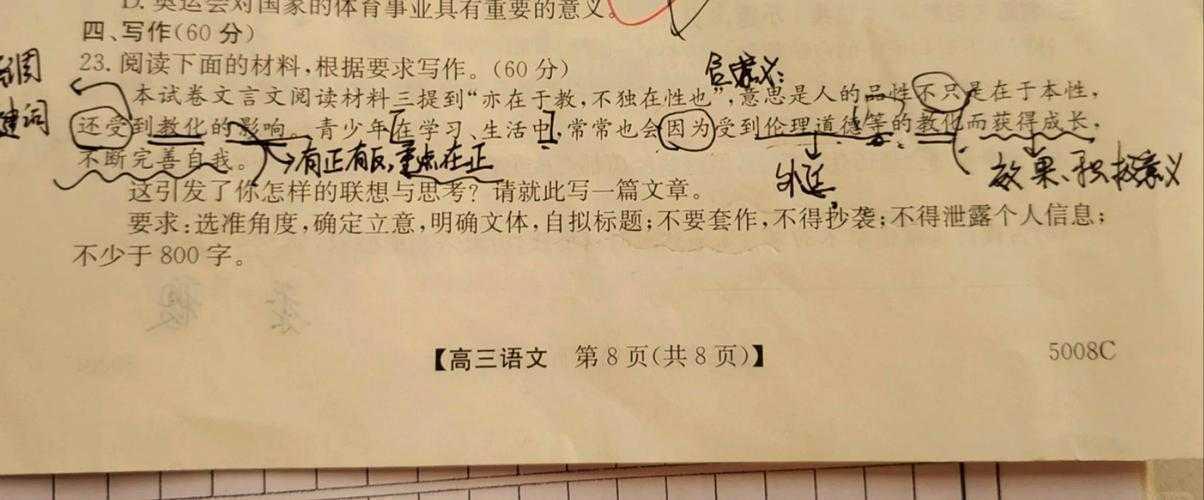 D. 奥运会对国家的体育事业具有重要的意义。
四、写作(60分)
23. 阅读下面的材料,根据要求写作。(60分)
词
含义:
本试卷文言文阅读材料三提到“亦在于教,不独在性也”,意思是人的品性不只是在于本性,
还受到教化的影响。青少年在学习、生活中,常常也会因为受到伦理道德等的教化而获得成长,
不断完善自我。
有正有反,重点在正
外延
效果、积极意义
这引发了你怎样的联想与思考?请就此写一篇文章。
要求:选准角度,确定立意,明确文体,自拟标题;不要套作,不得抄袭;不得泄露个人信息;
不少于800字。
【高三语文 第8页(共8页)】
5008C